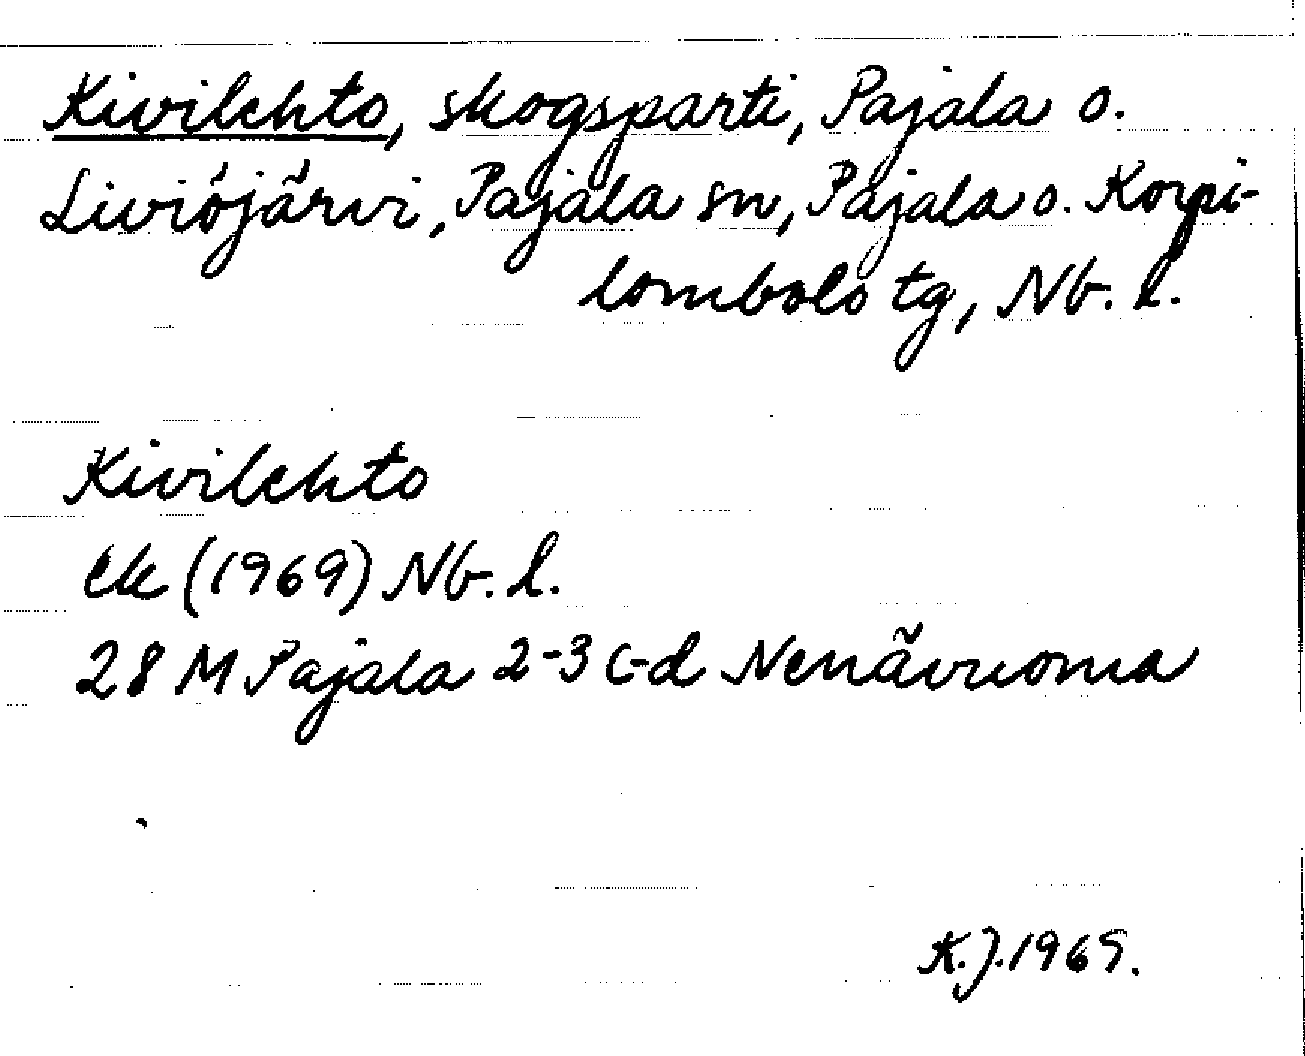 Kivilehto, skogsparti, Pajala o.
Liviöjärvi, Pajala sn, Pajala o. Korpi-
lombolo tg, Nb. l.
Kivilehto
ek (1969) Nb. l.
28 M Pajala 2-3 c-d Nenävuoma
K.J. 1969.